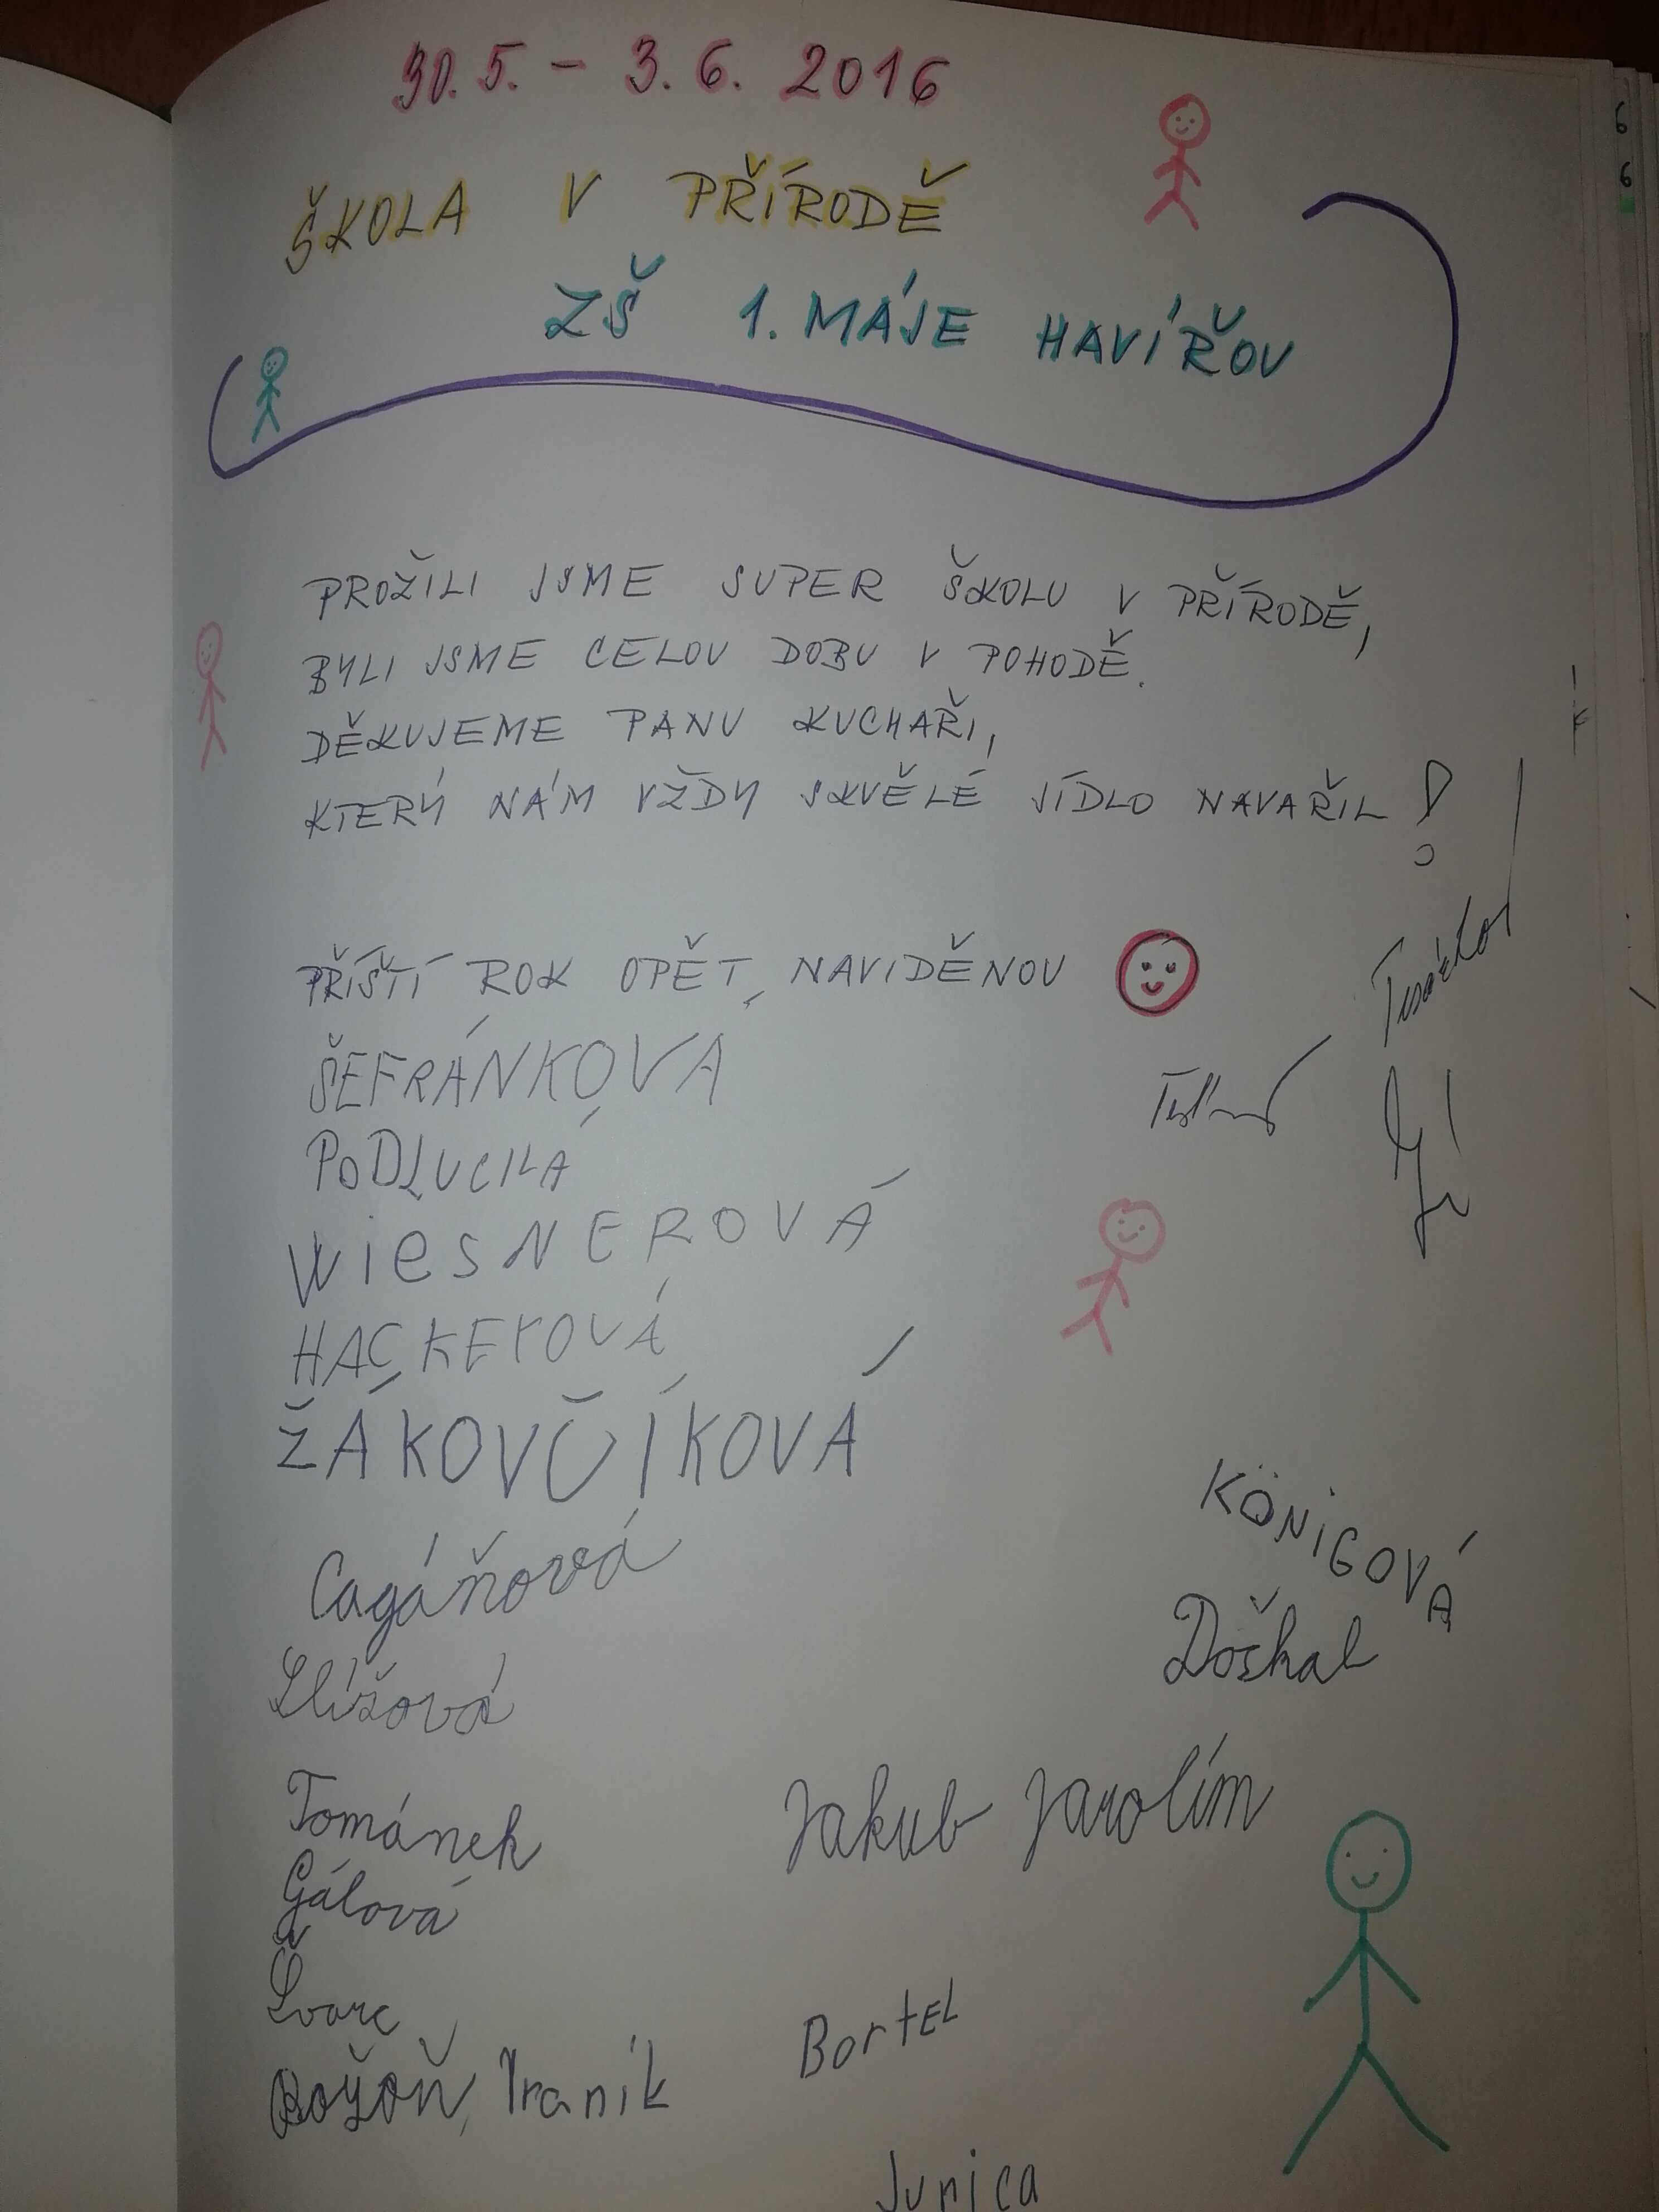 30. 5. - 3. 6. 2016
ŠKOLA V PŘÍRODĚ
ZŠ 1. MÁJE HAVÍŘOV
PROŽILI JSME SUPER ŠKOLU V PŘÍRODĚ,
BYLI JSME CELOU DOBU V POHODĚ.
DĚKUJEME PANU KUCHAŘI,
KTERÝ NÁM VŽDY SKVĚLÉ JÍDLO NAVAŘIL!
PŘÍŠTÍ ROK OPĚT NAVIDĚNOU
ŠEFRÁNKOVÁ
WieSNEROVÁ
HACKEROVÁ
ŽÁKOVČÍKOVÁ
KÖNiGOVÁ
Cagáňová
Doškal
Slížová
Tománek
Jakub Jarolím
Gálová
Švarc
Bortel
Božoň, Vraník
Junica